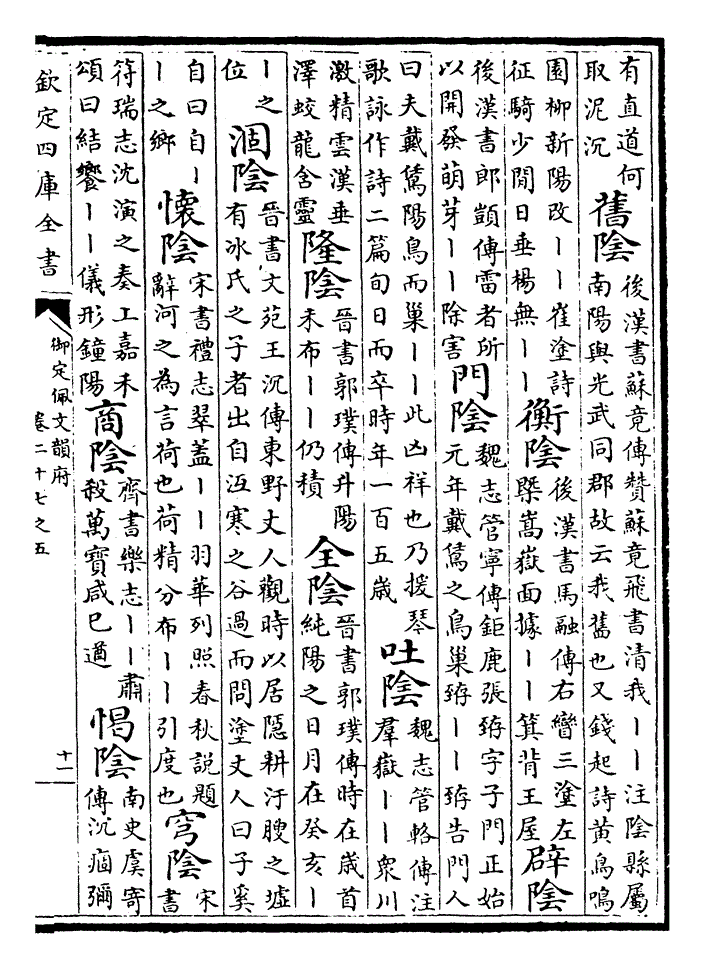 有直道何
取泥沉
舊陰
後漢書蘇竟傳贊蘇竟飛書清我丨丨注陰縣屬
南陽與光武同郡故云我舊也又錢起詩黃鳥鳴
園柳新陽改丨丨崔塗詩
征騎少閒日垂楊無丨丨
衡陰
後漢書馬融傳右矕三塗左
槩嵩嶽面據丨丨箕背王屋
辟陰
後漢書郎顗傳雷者所
以開發萌芽丨丨除害
門陰
魏志管寧傳鉅鹿張臶字子門正始
元年戴鵀之鳥巢臶丨丨臶告門人
曰夫戴鵀陽鳥而巢丨丨此凶祥也乃援琴
歌詠作詩二篇旬日而卒時年一百五歲
吐陰
魏志管輅傳注
羣嶽丨丨衆川
激精雲漢垂
澤蛟龍含靈
隆陰
晉書郭璞傳升陽
未布丨丨仍積
全陰
晉書郭璞傳時在歲首
純陽之日月在癸亥丨
丨之
位
涸陰
晉書文苑王沉傳東野丈人觀時以居隱耕汙腴之墟
有冰氏之子者出自沍寒之谷過而問塗丈人曰子奚
自曰自丨
丨之鄉
懷陰
宋書禮志翠蓋丨丨羽華列照春秋說題
辭河之為言荷也荷精分布丨丨引度也
穹陰
宋
書
符瑞志沈演之奏上嘉禾
頌曰結饗丨丨儀形鐘陽
商陰
齊書樂志丨丨肅
殺萬寶咸已遒
愒陰
南史虞寄
傳沉痼彌
欽定四庫全書
御定佩文韻府
卷二十七之五
十一